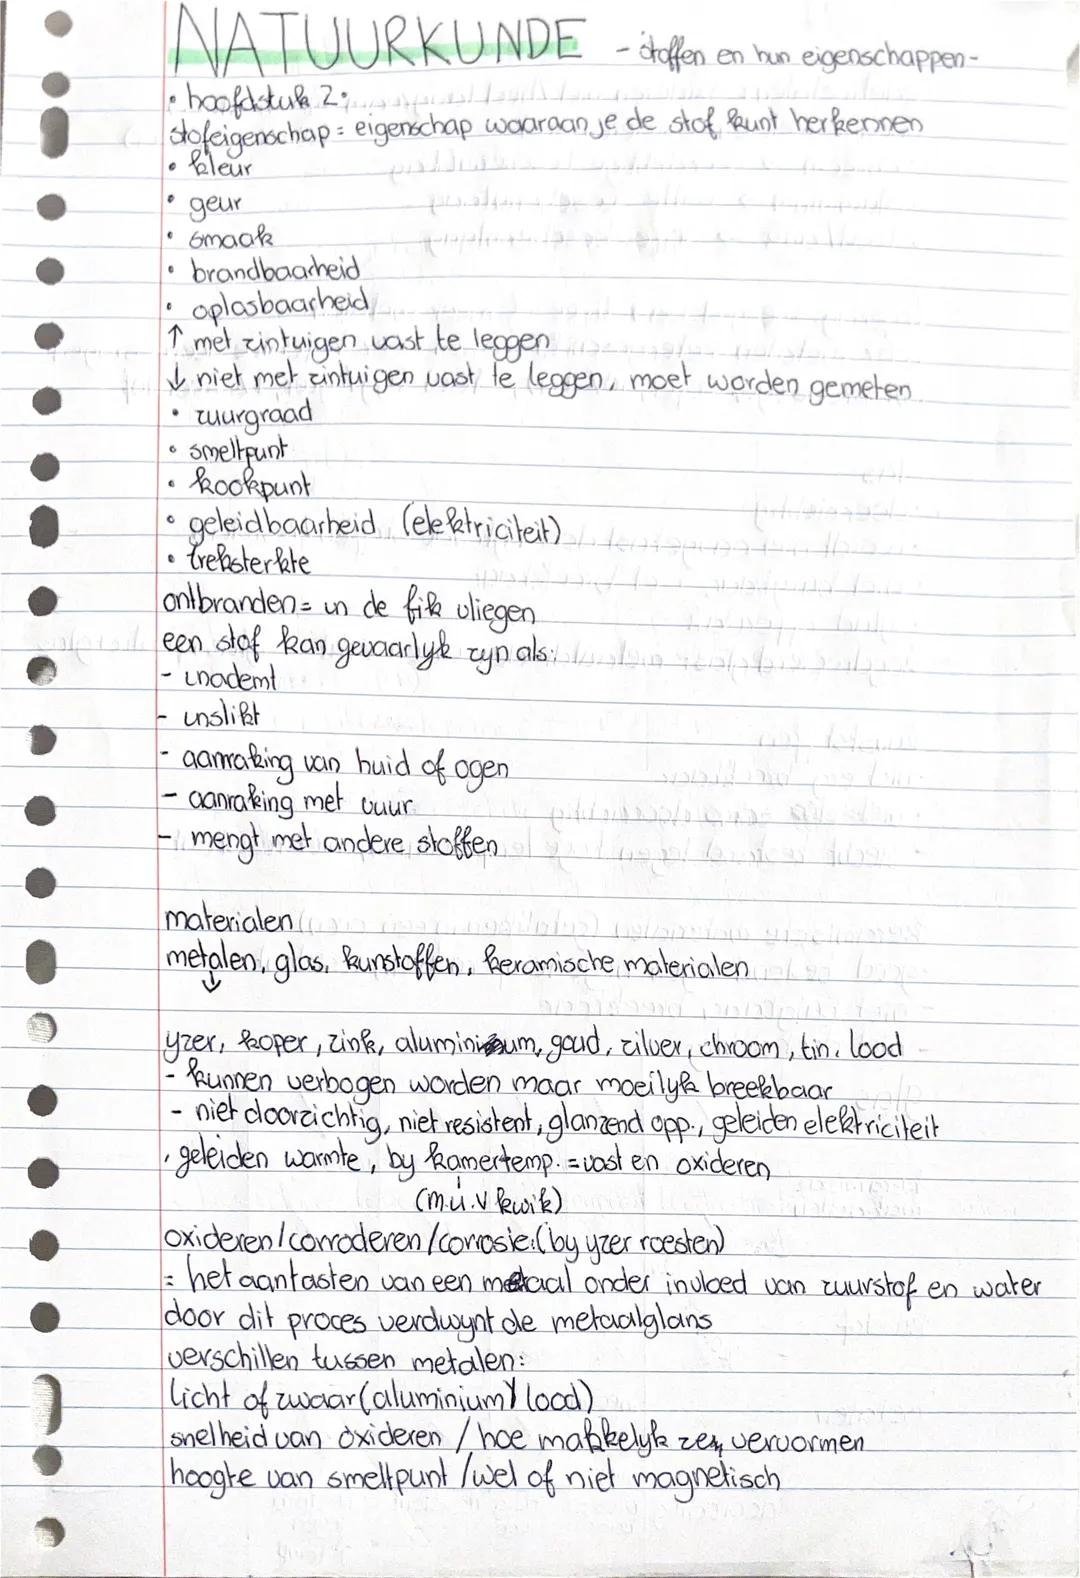 NATUURKUNDE - stoffen en hun eigenschappen -
• hoofdstuk 2:
stofeigenschap = eigenschap waaraan je de stof kunt herkennen
• kleur
• geur
• smaak
• brandbaarheid
• oplosbaarheid
↑ met zintuigen vast te leggen
↓ niet met zintuigen vast te leggen, moet worden gemeten
• zuurgraad
• smeltpunt
• kookpunt
• geleidbaarheid (elektriciteit)
• treksterkte
ontbranden = in de fik vliegen
een stof kan gevaarlyk zyn als:
- inademt
- inslikt
- aanraking van huid of ogen
- aanraking met vuur
- mengt met andere stoffen
materialen
metalen, glas, kunstoffen, keramische materialen
↓
yzer, koper, zink, aluminium, goud, zilver, chroom, tin, lood
- kunnen verbogen worden maar moeilyk breekbaar
- niet doorzichtig, niet resistent, glanzend opp., geleiden elektriciteit
, geleiden warmte, by kamertemp. = vast en oxideren
(m.u.v kwik)
oxideren/corroderen/corrosie:(by yzer roesten)
= het aantasten van een metaal onder invloed van zuurstof en water
door dit proces verdwynt de metaalglans
verschillen tussen metalen:
licht of zwaar (aluminium/lood)
snelheid van oxideren / hoe makkelyk ze vervormen
hoogte van smeltpunt / wel of niet magnetisch